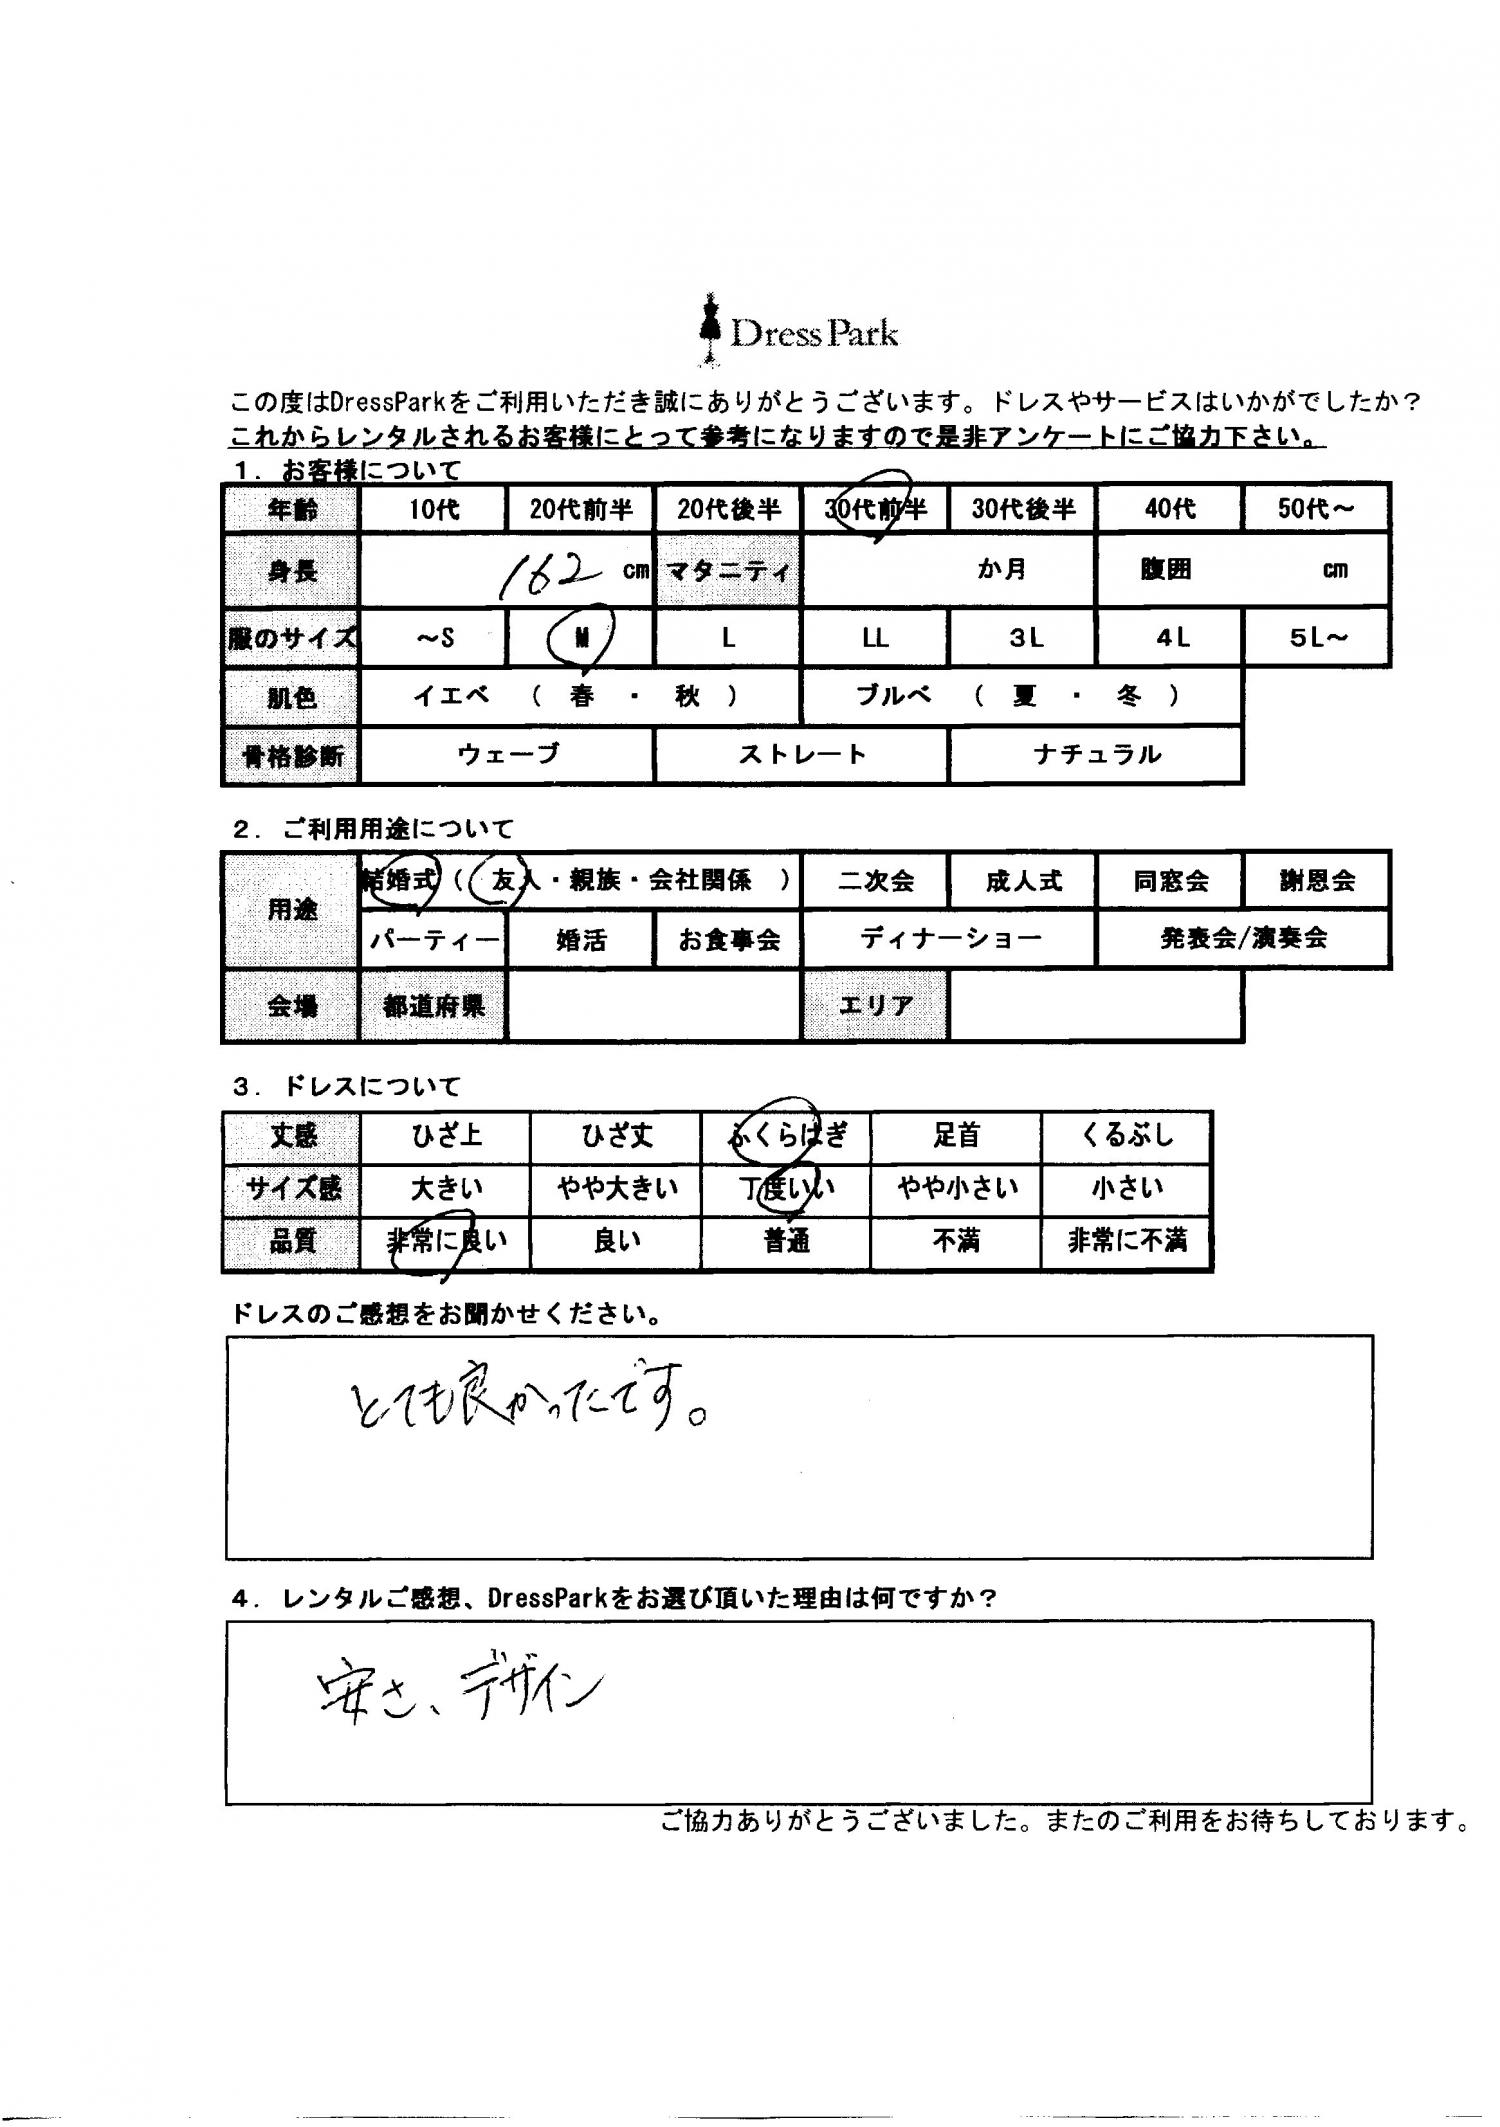 Dress Park
この度はDressParkをご利用いただき誠にありがとうございます。ドレスやサービスはいかがでしたか？
これからレンタルされるお客様にとって参考になりますので是非アンケートにご協力下さい。
１．お客様について
年齢 10代 20代前半 20代後半 30代前半 30代後半 40代 50代～
身長 162 cm マタニティ か月 腹囲 cm
服のサイズ ～S M L LL 3L 4L 5L～
肌色 イエベ （ 春 ・ 秋 ） ブルベ （ 夏 ・ 冬 ）
骨格診断 ウェーブ ストレート ナチュラル
２．ご利用用途について
用途 結婚式（ 友人・親族・会社関係 ） 二次会 成人式 同窓会 謝恩会
パーティー 婚活 お食事会 ディナーショー 発表会/演奏会
会場 都道府県 エリア
３．ドレスについて
丈感 ひざ上 ひざ丈 ふくらはぎ 足首 くるぶし
サイズ感 大きい やや大きい 丁度いい やや小さい 小さい
品質 非常に良い 良い 普通 不満 非常に不満
ドレスのご感想をお聞かせください。
とても良かったです。
４．レンタルご感想、DressParkをお選び頂いた理由は何ですか？
安さ、デザイン
ご協力ありがとうございました。またのご利用をお待ちしております。